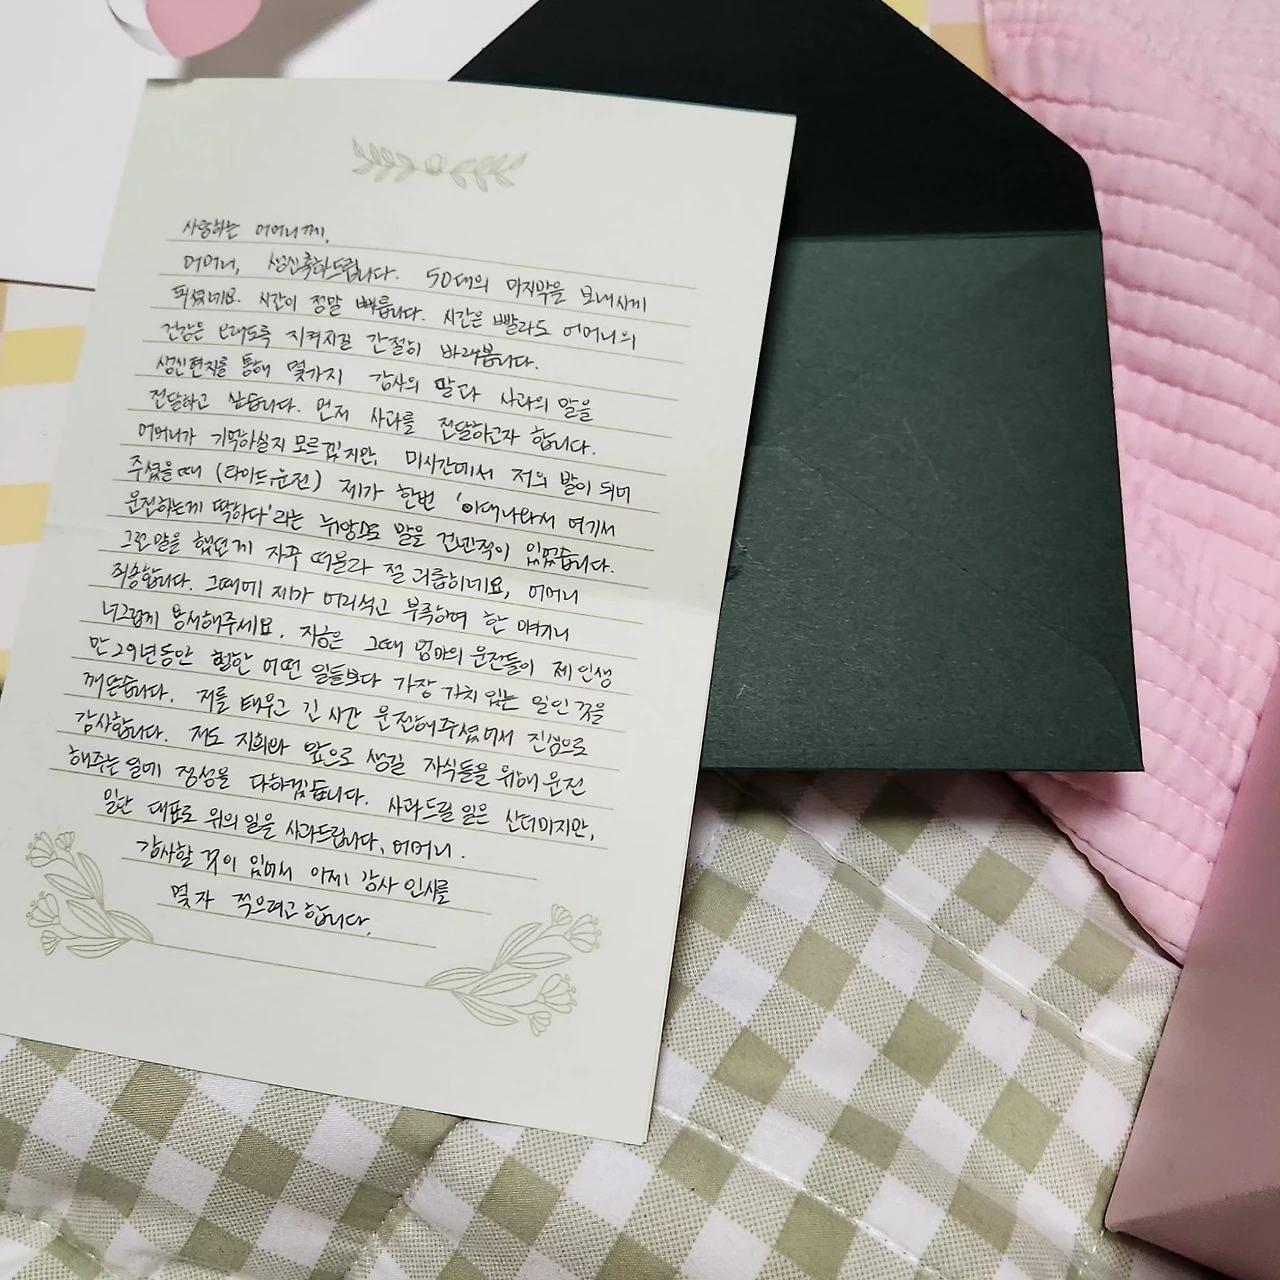 사랑하는 어머니께,
어머니, 생신축하드립니다. 50대의 마지막을 보내시게
되셨네요. 시간이 정말 빠릅니다. 시간은 빨라도 어머니의
건강은 오래도록 지켜지길 간절히 바래봅니다.
생신편지를 통해 몇가지 감사의 말과 사과의 말을
전달하고 싶습니다. 먼저 사과를 전달하고자 합니다.
어머니가 기억하실지 모르겠지만, 미시간에서 저의 발이 되어
주셨을때 (라이드,운전) 제가 한번 '아대나와서 여기서
운전하는게 딱하다'라는 뉘앙스로 말을 건넨적이 있었습니다.
그런말을 했던게 자꾸 떠올라 절 괴롭히네요, 어머니
죄송합니다. 그때에 제가 어리석고 부족하여 한 얘기니
너그럽게 용서해주세요. 지금은 그때 엄마의 운전들이 제 인생
만 29년동안 행한 어떤 일들보다 가장 가치있는 일인 것을
깨닫습니다. 저를 태우고 긴 시간 운전해주셨어서 진심으로
감사합니다. 저도 지희와 앞으로 생길 자식들을 위해 운전
해주는 일에 정성을 다하겠습니다. 사과드릴 일은 산더미지만,
일단 대표로 위의 일을 사과드립니다, 어머니.
감사할 것이 있어서 이제 감사 인사를
몇자 적으려고 합니다.